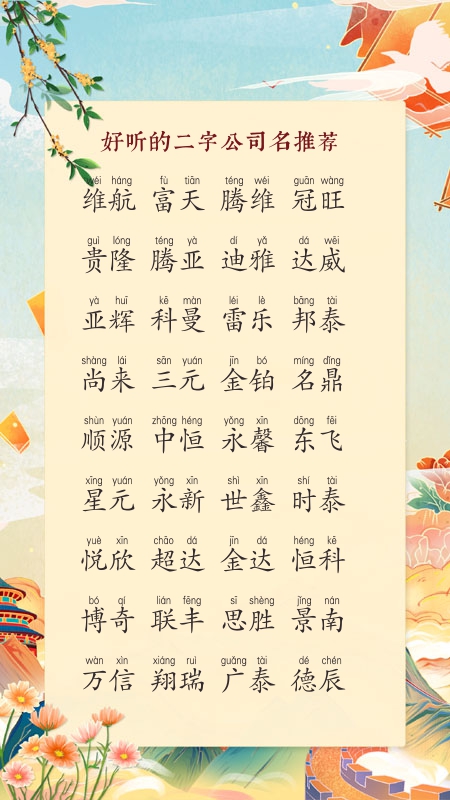 好听的二字公司名推荐
wéi háng fù tiān téng wéi guān wàng
维航 富天 腾维 冠旺
guì lóng téng yà dí yǎ dá wēi
贵隆 腾亚 迪雅 达威
yà huī kē màn léi lè bāng tài
亚辉 科曼 雷乐 邦泰
shàng lái sān yuán jīn bó míng dǐng
尚来 三元 金铂 名鼎
shùn yuán zhōng héng yǒng xīn dōng fēi
顺源 中恒 永馨 东飞
xīng yuán yǒng xīn shì xīn shí tài
星元 永新 世鑫 时泰
yuè xīn chāo dá jīn dá héng kē
悦欣 超达 金达 恒科
bó qí lián fēng sī shèng jǐng nán
博奇 联丰 思胜 景南
wàn xìn xiáng ruì guǎng tài dé chén
万信 翔瑞 广泰 德辰